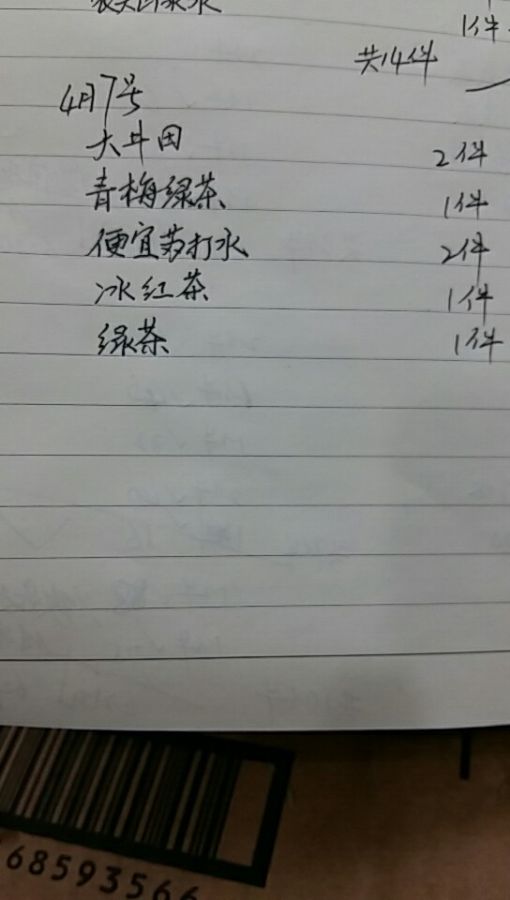 1件
共14件
4月7号
大井田 2件
青梅绿茶 1件
便宜苏打水 2件
冰红茶 1件
绿茶 1件
68593566